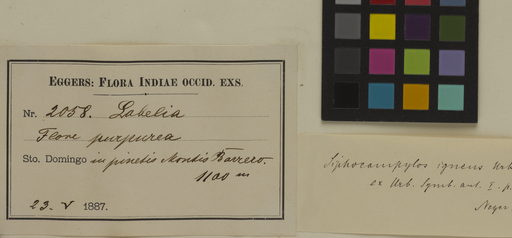 EGGERS: FLORA INDIAE OCCID. EXS.
Nr. 2058. Lobelia
Flore purpurea
Sto. Domingo in pinetis Montis Barrero.
1100 m
23. V 1887.
Siphocampylos igneus Urb
ex Urb. Symb. ant. I. p.